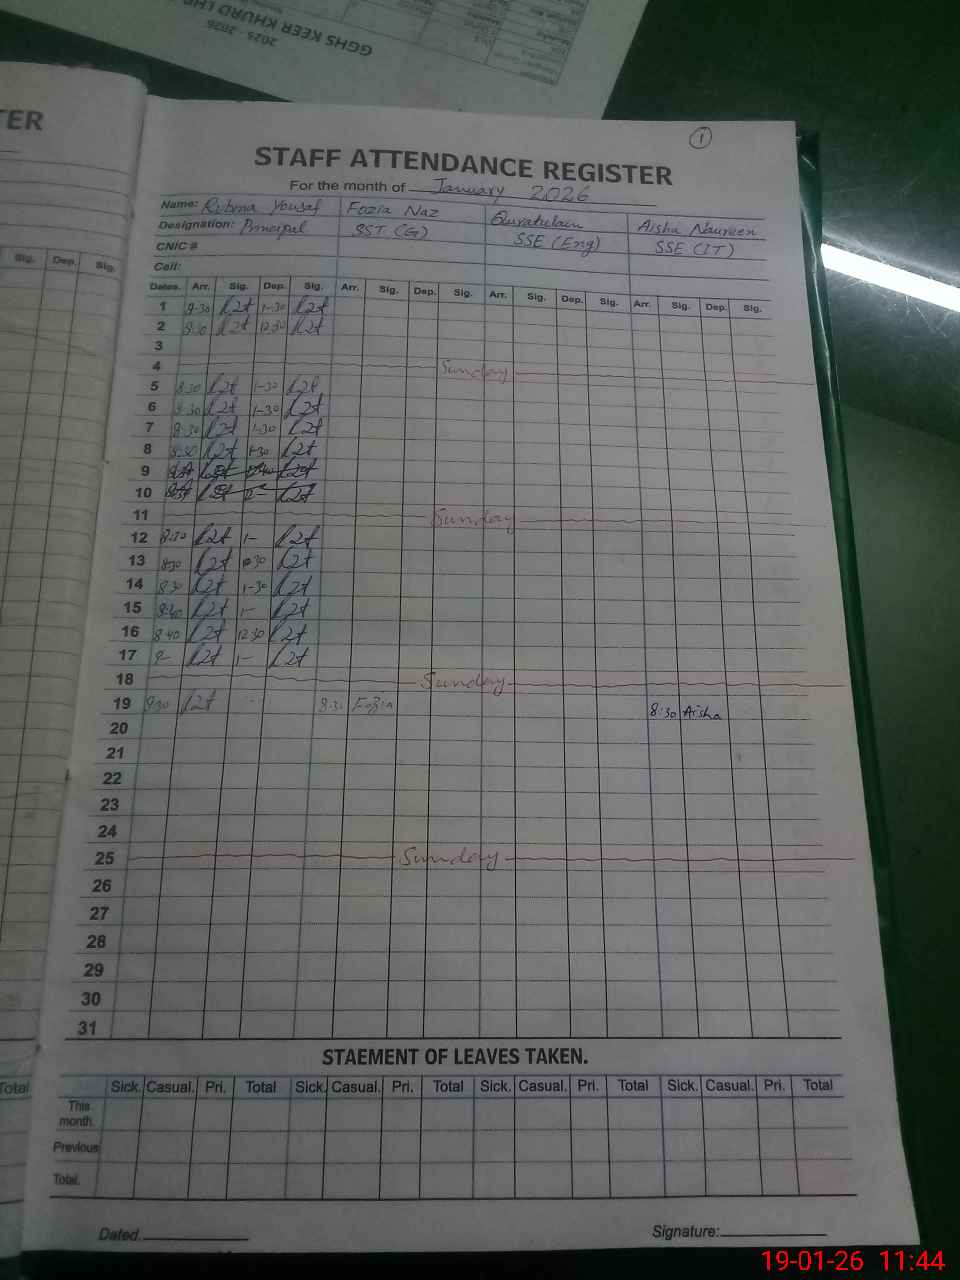 2025 - 2026
GGHS KEER KHURD LHR
TER
1
STAFF ATTENDANCE REGISTER
For the month of January 2026
Name: Rubina Yousaf Fozia Naz Quratulain Aisha Naureen
Designation: Principal SST (G) SSE (Eng) SSE (IT)
CNIC #
Cell:
Sig. Dep. Sig.
Dates. Arr. Sig. Dep. Sig. Arr. Sig. Dep. Sig. Arr. Sig. Dep. Sig. Arr. Sig. Dep. Sig.
1 8-30 1-30
2 8-30 12-30
3
4 Sunday
5 8-30 1-30
6 8-30 1-30
7 8-30 1-30
8 8-30 1-30
9
10
11 Sunday
12 8-30 1-
13 8-30
14 8-30 1-30
15 8-40 1-
16 8-40 12-30
17 9- 1-
18 Sunday
19 8-30 8:30 Fozia 8:30 Aisha
20
21
22
23
24
25 Sunday
26
27
28
29
30
31
STAEMENT OF LEAVES TAKEN.
Total Sick. Casual. Pri. Total Sick. Casual. Pri. Total Sick. Casual. Pri. Total Sick. Casual. Pri. Total
This month.
Previous
Total.
Dated. Signature:
19-01-26 11:44